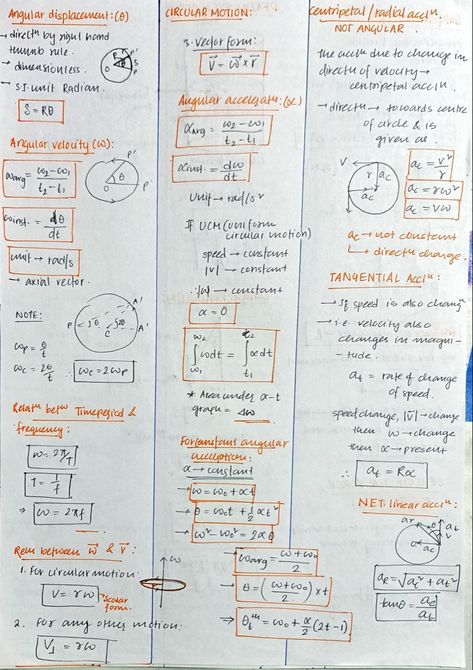 Angular displacement: (θ)
→ directⁿ by right hand
thumb rule.
→ dimensionless.
→ SI unit Radian.
O θ S P R P'
S = Rθ
Angular velocity (ω):
ωavg = ω2 - ω1 / t2 - t1
O θ P' P
ωinst. = dθ / dt
unit → rad/s
→ axial vector.
NOTE:
P θ C 2θ A' A'
ωp = θ/t
ωc = 2θ/t
∴ ωc = 2ωp
Relatⁿ betⁿ Timeperiod &
frequency:
ω = 2π/T
T = 1/f
⇒ ω = 2πf
Relⁿ between ω⃗ & v⃗ :
1. For circular motion:
V = rω → scalar
form.
2. For any other motion:
V⊥ = rω
CIRCULAR MOTION:
3. vector form:
V⃗ = ω⃗ × r⃗
Angular acceleratⁿ: (α)
αavg = ω2 - ω1 / t2 - t1
αinst. = dω / dt
Unit → rad/s²
If UCM (uniform
circular motion)
speed → constant
|v| → constant
∴ |ω| → constant
α = 0
∫ω1^ω2 ωdt = ∫t1^t2 αdt
* Area under α-t
graph = Δω
For constant angular
α → constant
→ ω = ω0 + αt
→ θ = ω0t + 1/2 αt²
→ ω² - ω0² = 2αθ
ω
→ ωavg = ω + ω0 / 2
→ θ = (ω + ω0 / 2) × t
⇒ θt^th = ω0 + α/2 (2t-1)
Centripetal / radial accⁿ.
NOT ANGULAR.
The accⁿ due to change in
directⁿ of velocity →
centripetal accⁿ.
→ directⁿ → towards centre
of circle & is
given as.
V r ac r ac V
ac = v²/r
ac = rω²
ac = vω
ac → not constant
↳ directⁿ change.
TANGENTIAL Accⁿ:
→ If speed is also chang
→ i.e velocity also
changes in magni-
tude.
at = rate of change
of speed.
speed change, |v| → change
then ω → change
then α → present
∴ at = Rα
NET linear accⁿ:
at θ ac O
ae = √ac² + at²
tanθ = at / ac